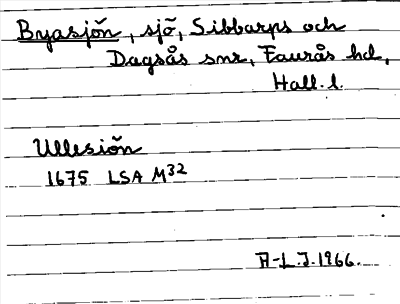 Byasjön, sjö, Sibbarps och
Dagsås snr, Faurås hd,
Hall. l.
Ullesiön
1675 LSA M32
A-L. J. 1966.